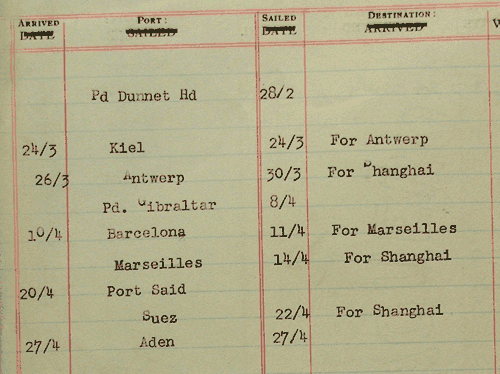 ARRIVED PORT: SAILED DESTINATION:
DATE SAILED DATE ARRIVED
Pd Dunnet Hd 28/2
24/3 Kiel 24/3 For Antwerp
26/3 Antwerp 30/3 For Shanghai
Pd. Gibraltar 8/4
10/4 Barcelona 11/4 For Marseilles
Marseilles 14/4 For Shanghai
20/4 Port Said
Suez 22/4 For Shanghai
27/4 Aden 27/4